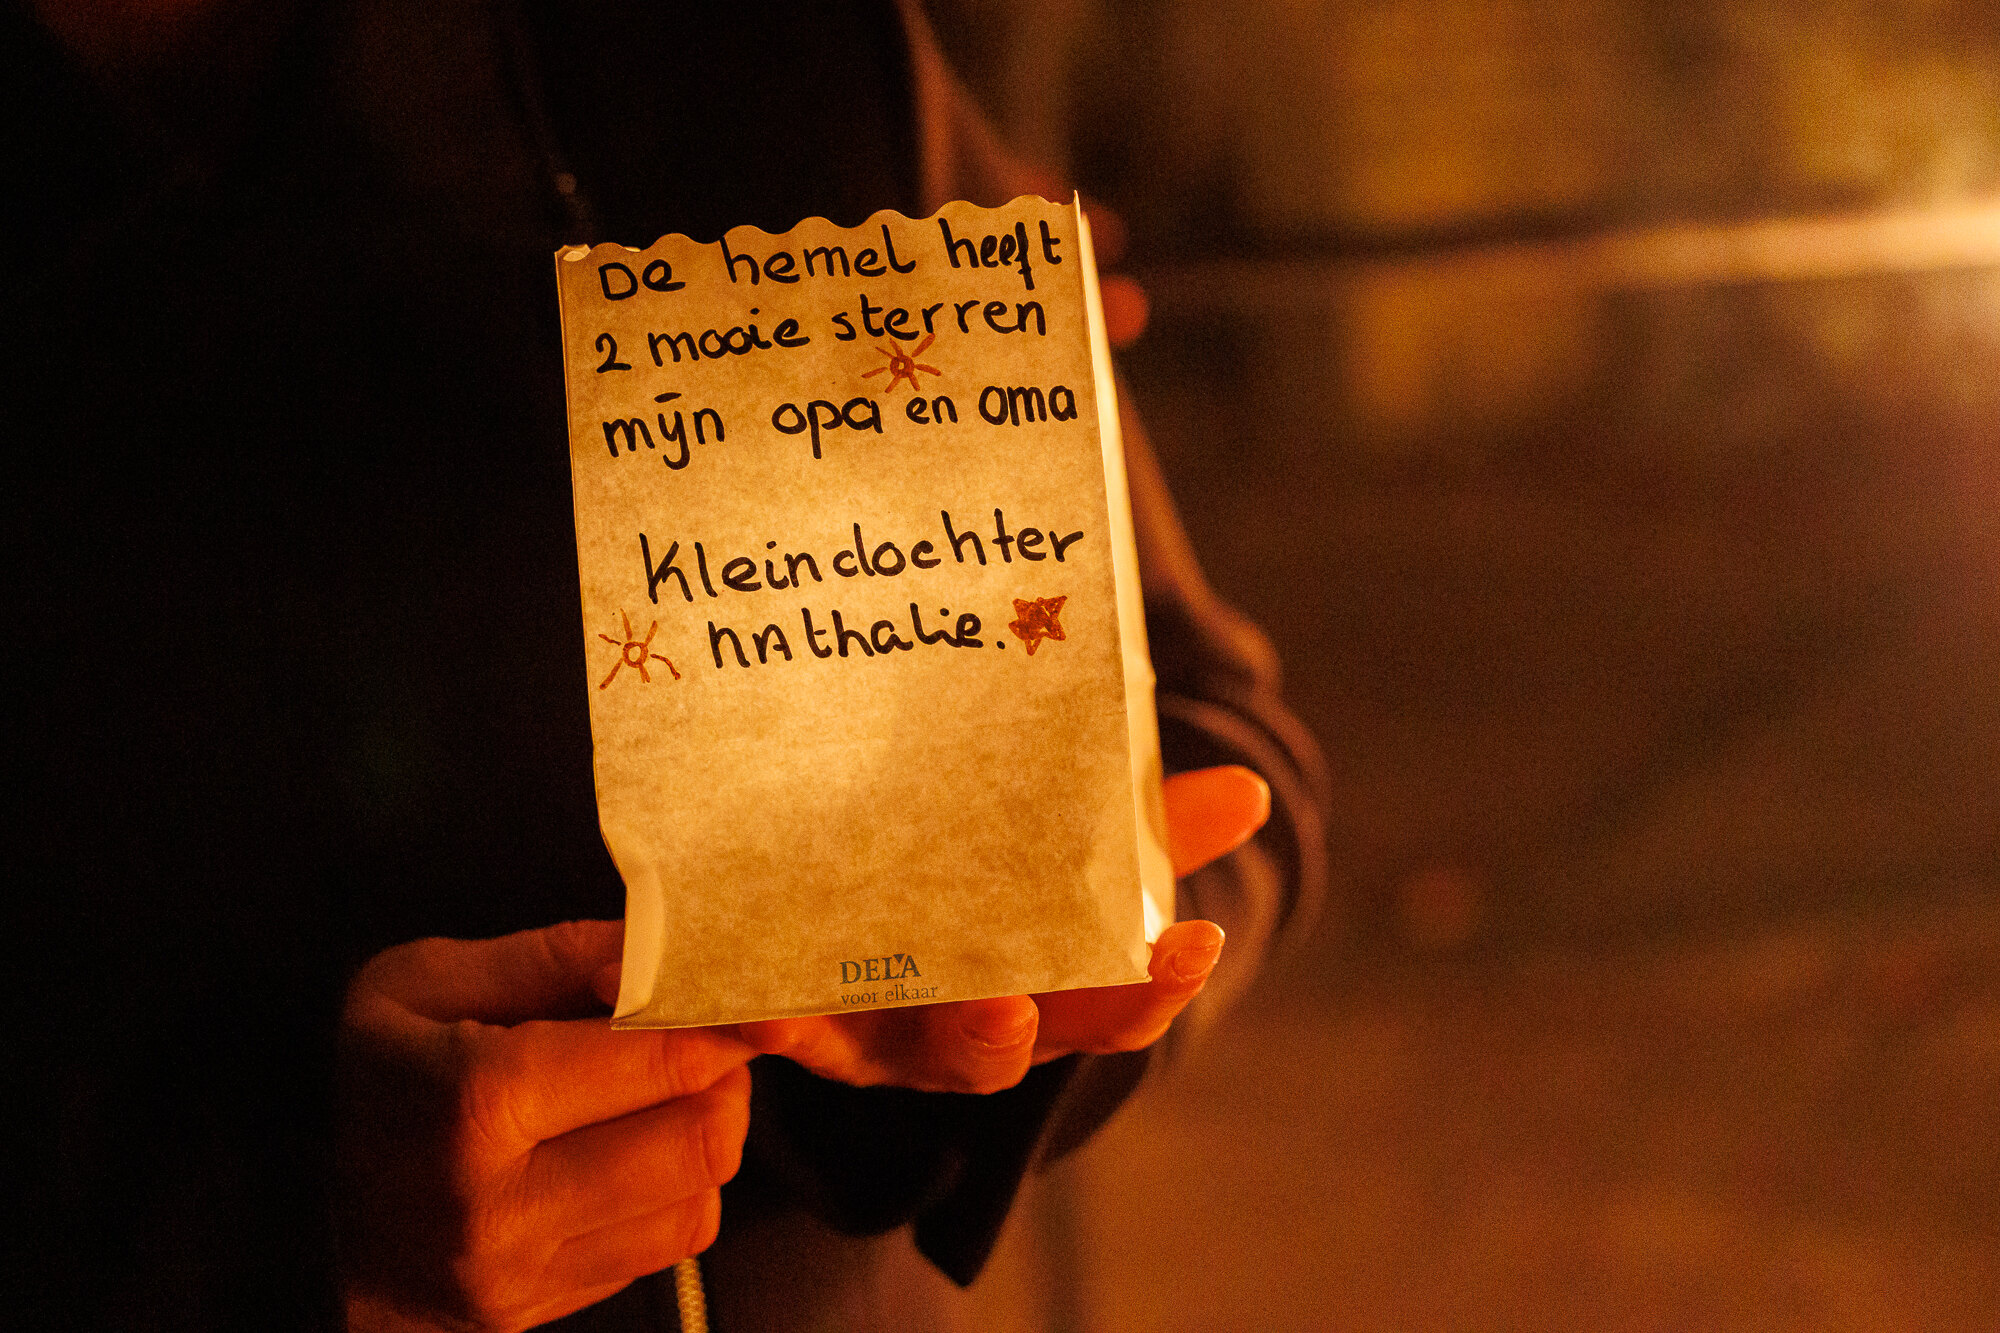 De hemel heeft
2 mooie sterren
mijn opa en oma
Kleindochter
nathalie.
DELA
voor elkaar